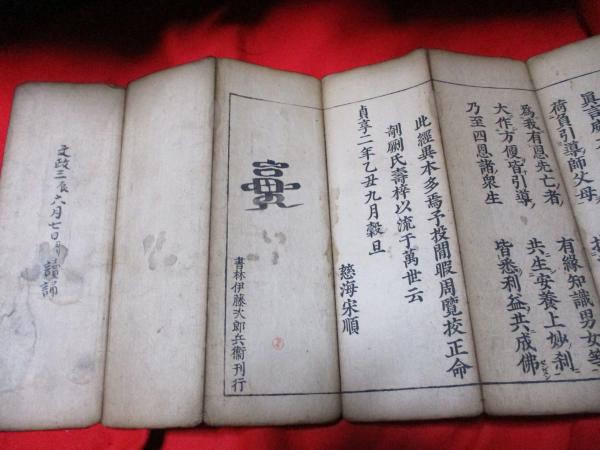 荷負引導師父母
為我有恩先亡者 有縁知識男女等
大作方便皆引導 共生安養上妙刹
乃至四恩諸衆生 皆悉利益共成佛
此經異本多焉予投閒暇周覽校正命
剞劂氏壽梓以流于萬世云
貞享二年乙丑九月穀旦
慈海宋順
書林伊藤次郎兵衞刊行
文政三辰六月七日 讀誦